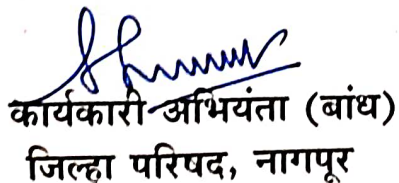 कार्यकारी अभियंता (बांध)
जिल्हा परिषद, नागपूर